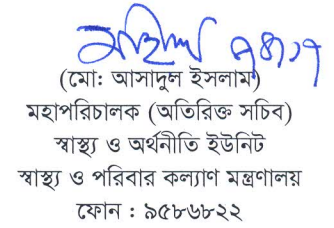 (মো: আসাদুল ইসলাম)
মহাপরিচালক (অতিরিক্ত সচিব)
স্বাস্থ্য ও অর্থনীতি ইউনিট
স্বাস্থ্য ও পরিবার কল্যাণ মন্ত্রণালয়
ফোন : ৯৫৮৬৮২২